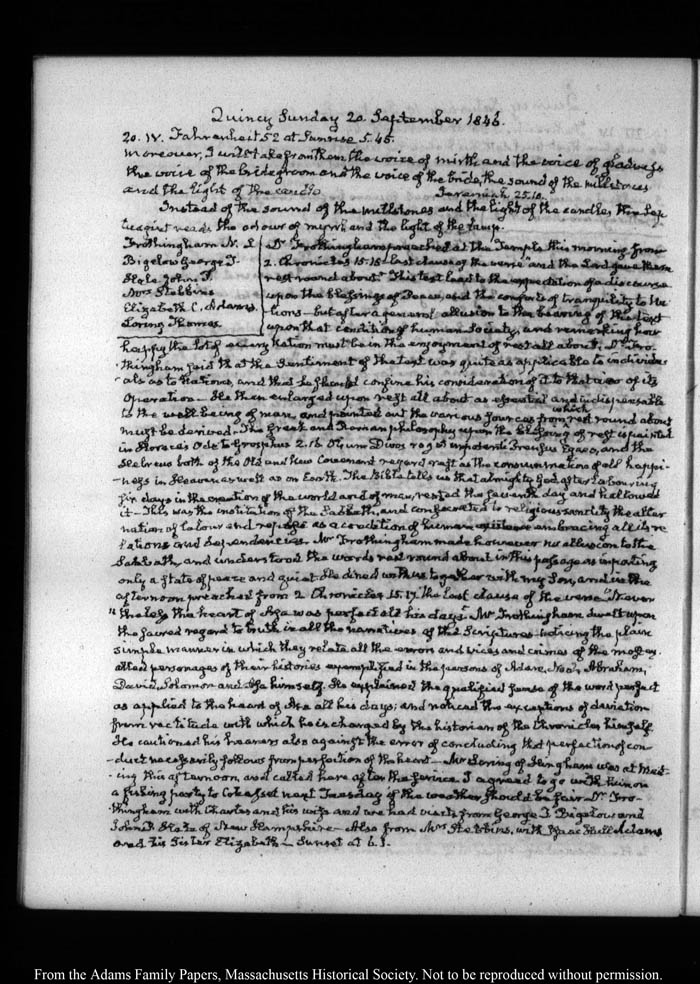 Quincy Sunday 20 September 1846.
20. IV. Fahrenheit 52 at Sunrise 5.45.
Moreover, I will take from them the voice of mirth, and the voice of gladness
the voice of the bridegroom and the voice of the bride, the sound of the millstones
and the light of the candle. Jeremiah. 25.10.
Instead of the sound of the millstones and the light of the candles, the Sep-
tuagint reads the odour of myrrh and the light of the lamp.
Frothingham N. L
Bigelow George T.
Hale John P.
Mrs Stebbins
Elizabeth C. Adams.
Loring Thomas.
Dr Frothingham preached at the Temple this morning from
2. Chronicles 15.15 last clause of the verse "and the Lord gave them
rest round about." This text lead to the expectation of a discourse
upon the blessings of Peace, and the comforts of tranquility to Na-
tions—but after a general allusion to the bearing of the text
upon that condition of human Society, and remarking how
happy the lot of every Nation must be in the enjoyment of rest all about, Dr Fro-
thingham said that the sentiment of the text was quite as applicable to individu-
als as to Nations, and that he should confine his consideration of it to that view of its
operation— He then enlarged upon rest all about as essential and indispensable
to the well being of man, and pointed out the various sources from which rest round about
must be derived. The Greek and Roman philosophy upon the blessing of rest is painted
in Horace's Ode to Grosphus 2.16 Otium Divos rogat Ægaeo, and the
Hebrews both of the Old and New Covenant regard rest as the consummation of all happi-
ness in Heaven as well as on Earth. The Bible tells us that almighty God after labouring
six days in the creation of the world and of man, rested the seventh day and hallowed
it— This was the institution of the Sabbath, and consecrated to religious sanctity the alter
nation of labour and repose as a condition of human existence embracing all its re-
lations and dependencies. Mr Frothingham made however no allusion to the
Sabbath, and understood the words rest round about in this passage as importing
only a state of peace and quiet. He dined with us together with my Son, and in the
afternoon preached from 2 Chronicles 15.17. the last clause of the verse "Never
"theless the heart of Asa was perfect all his days." Mr Frothingham dwelt upon
the sacred regard to truth in all the narratives of the Scriptures—noticing the plain
simple manner in which they relate all the errors and vices and crimes of the most ex-
alted personages of their histories exemplified in the persons of Adam, Noah, Abraham,
David, Solomon and Asa himself. He explained the qualified sense of the word perfect
as applied to the heart of Asa all his days; and noticed the exceptions of deviation
from rectitude with which he is charged by the historian of the Chronicles himself.
He cautioned his hearers also against the error of concluding that perfection of con-
duct necessarily follows from perfection of the heart— Mr Loring of Hingham was at Meet-
ing this afternoon, and called here after the service I agreed to go with him on
a fishing party to Cohasset next Tuesday if the weather should be fair— Dr Fro-
thingham with Charles and his wife and we had visits from George T. Bigelow and
John P. Hale of New Hampshire— Also from Mrs Stebbins, with Isaac Hull Adams
and his Sister Elizabeth— Sunset at 6.1.
From the Adams Family Papers, Massachusetts Historical Society. Not to be reproduced without permission.